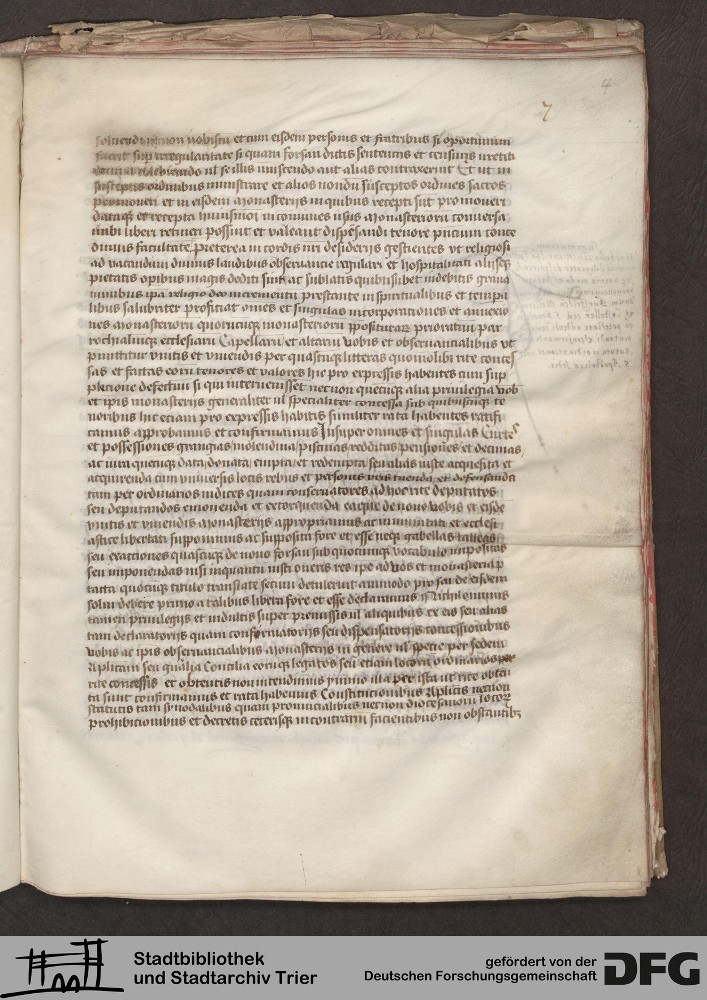 4
7
soluend necnon vobiscu et cum eisdem personis et fratribus si oportunum
fuerit sup irregularitate si quam forsan dictis sentenciis et censuris irretiti
celebrando ul se illis miscendo aut alias contraxerint Et ut in
susceptis ordinibus ministrare et alios nondu susceptos ordines sacros
promoueri et in eisdem monasterijs in quibus recepti sut promoueri
dataq et recepta huiusmoi in comunes usus monasterioru conuersa
inibi liberi retineri possint et valeant dispesandi tenore pntium conce
dimus facultate Preterea in cordis nri desiderijs gestientes vt religiosi
ad vacandum diuinis laudibus obseruantie regulari et hospitalitati alijsq
pietatis opibus magis dediti sint ac sublatis quibuslibet indebitis graua
minibus ipa religio deo incrementu prestante in spiritualibus et tempa
libus salubriter proficiat omes et singulas incorporationes et annexio
nes monasterioru quorucuq monasterioru ppositurar prioratuu par
rochialiuq ecclesiaru Capellaru et altariu vobis et obseruancialibus vt
pmittitur vnitis et vniendis per quascuq litteras quomolibz rite conces
sas et factas eoru tenores et valores hic pro expressis habentes cum sup
pletione defectuu si qui interuenisset necnon quecuq alia priuilegia vob
et ipis monasterijs generaliter ul specialiter concessa sub quibuscuq te
noribus hic etiam pro expressis habitis similiter rata habentes ratifi
camus approbamus et confirmamus Insuper omnes et singulas Curtes
et possessiones grangias molendina piscinas redditus pensiones et decimas
ac iura quecuq data donata empta et redempta seu alias iuste acquisita et
acquirenda cum vniuersis locis rebus et personis vris tuenda et defensanda
tam per ordinarios iudices quam conseruatores ad hoc rite deputatos
seu deputandos emonenda et extorquenda eaque de nouo vobis et eisde
vnitis et vniendis monasterijs appropriamus ac immunitati et ecclesi
astice libertati supponimus ac supposita fore et esse neq gabellas taleas
seu exactiones quascuq de nouo forsan sub quocumq vocabulo impositas
seu imponendas nisi inquantu iusti oneris res ipe ad vos et monasteria p
tacta quocuq titulo translate secum detulerint ammodo pro sui de eisdem
solui debere pnimo a talibus libera fore et esse declaramus Nichilominus
tamen priuilegijs et indultis super premissis ul aliquibus ex eis seu alias
tam declaratorijs quam conseruatorijs seu dispensatorijs concessionibus
vobis ac ipis obseruancialibus monasterijs in genere ul specie per sedem
Aplicam seu gnalia Concilia eoruq legatos seu etiam locoru ordinarios per
rite concessis et obtentis non intendimus ymmo illa per ista ut rite obte
ta sunt confirmamus et rata habemus Constitucionibus Aplicis necnon
statutis tam synodalibus quam prouincialibus necnon diocesanoru locor
prohibitionibus et decretis ceterisq in contrariu facientibus non obstantibz
Stadtbibliothek
und Stadtarchiv Trier
gefördert von der
Deutschen Forschungsgemeinschaft
DFG